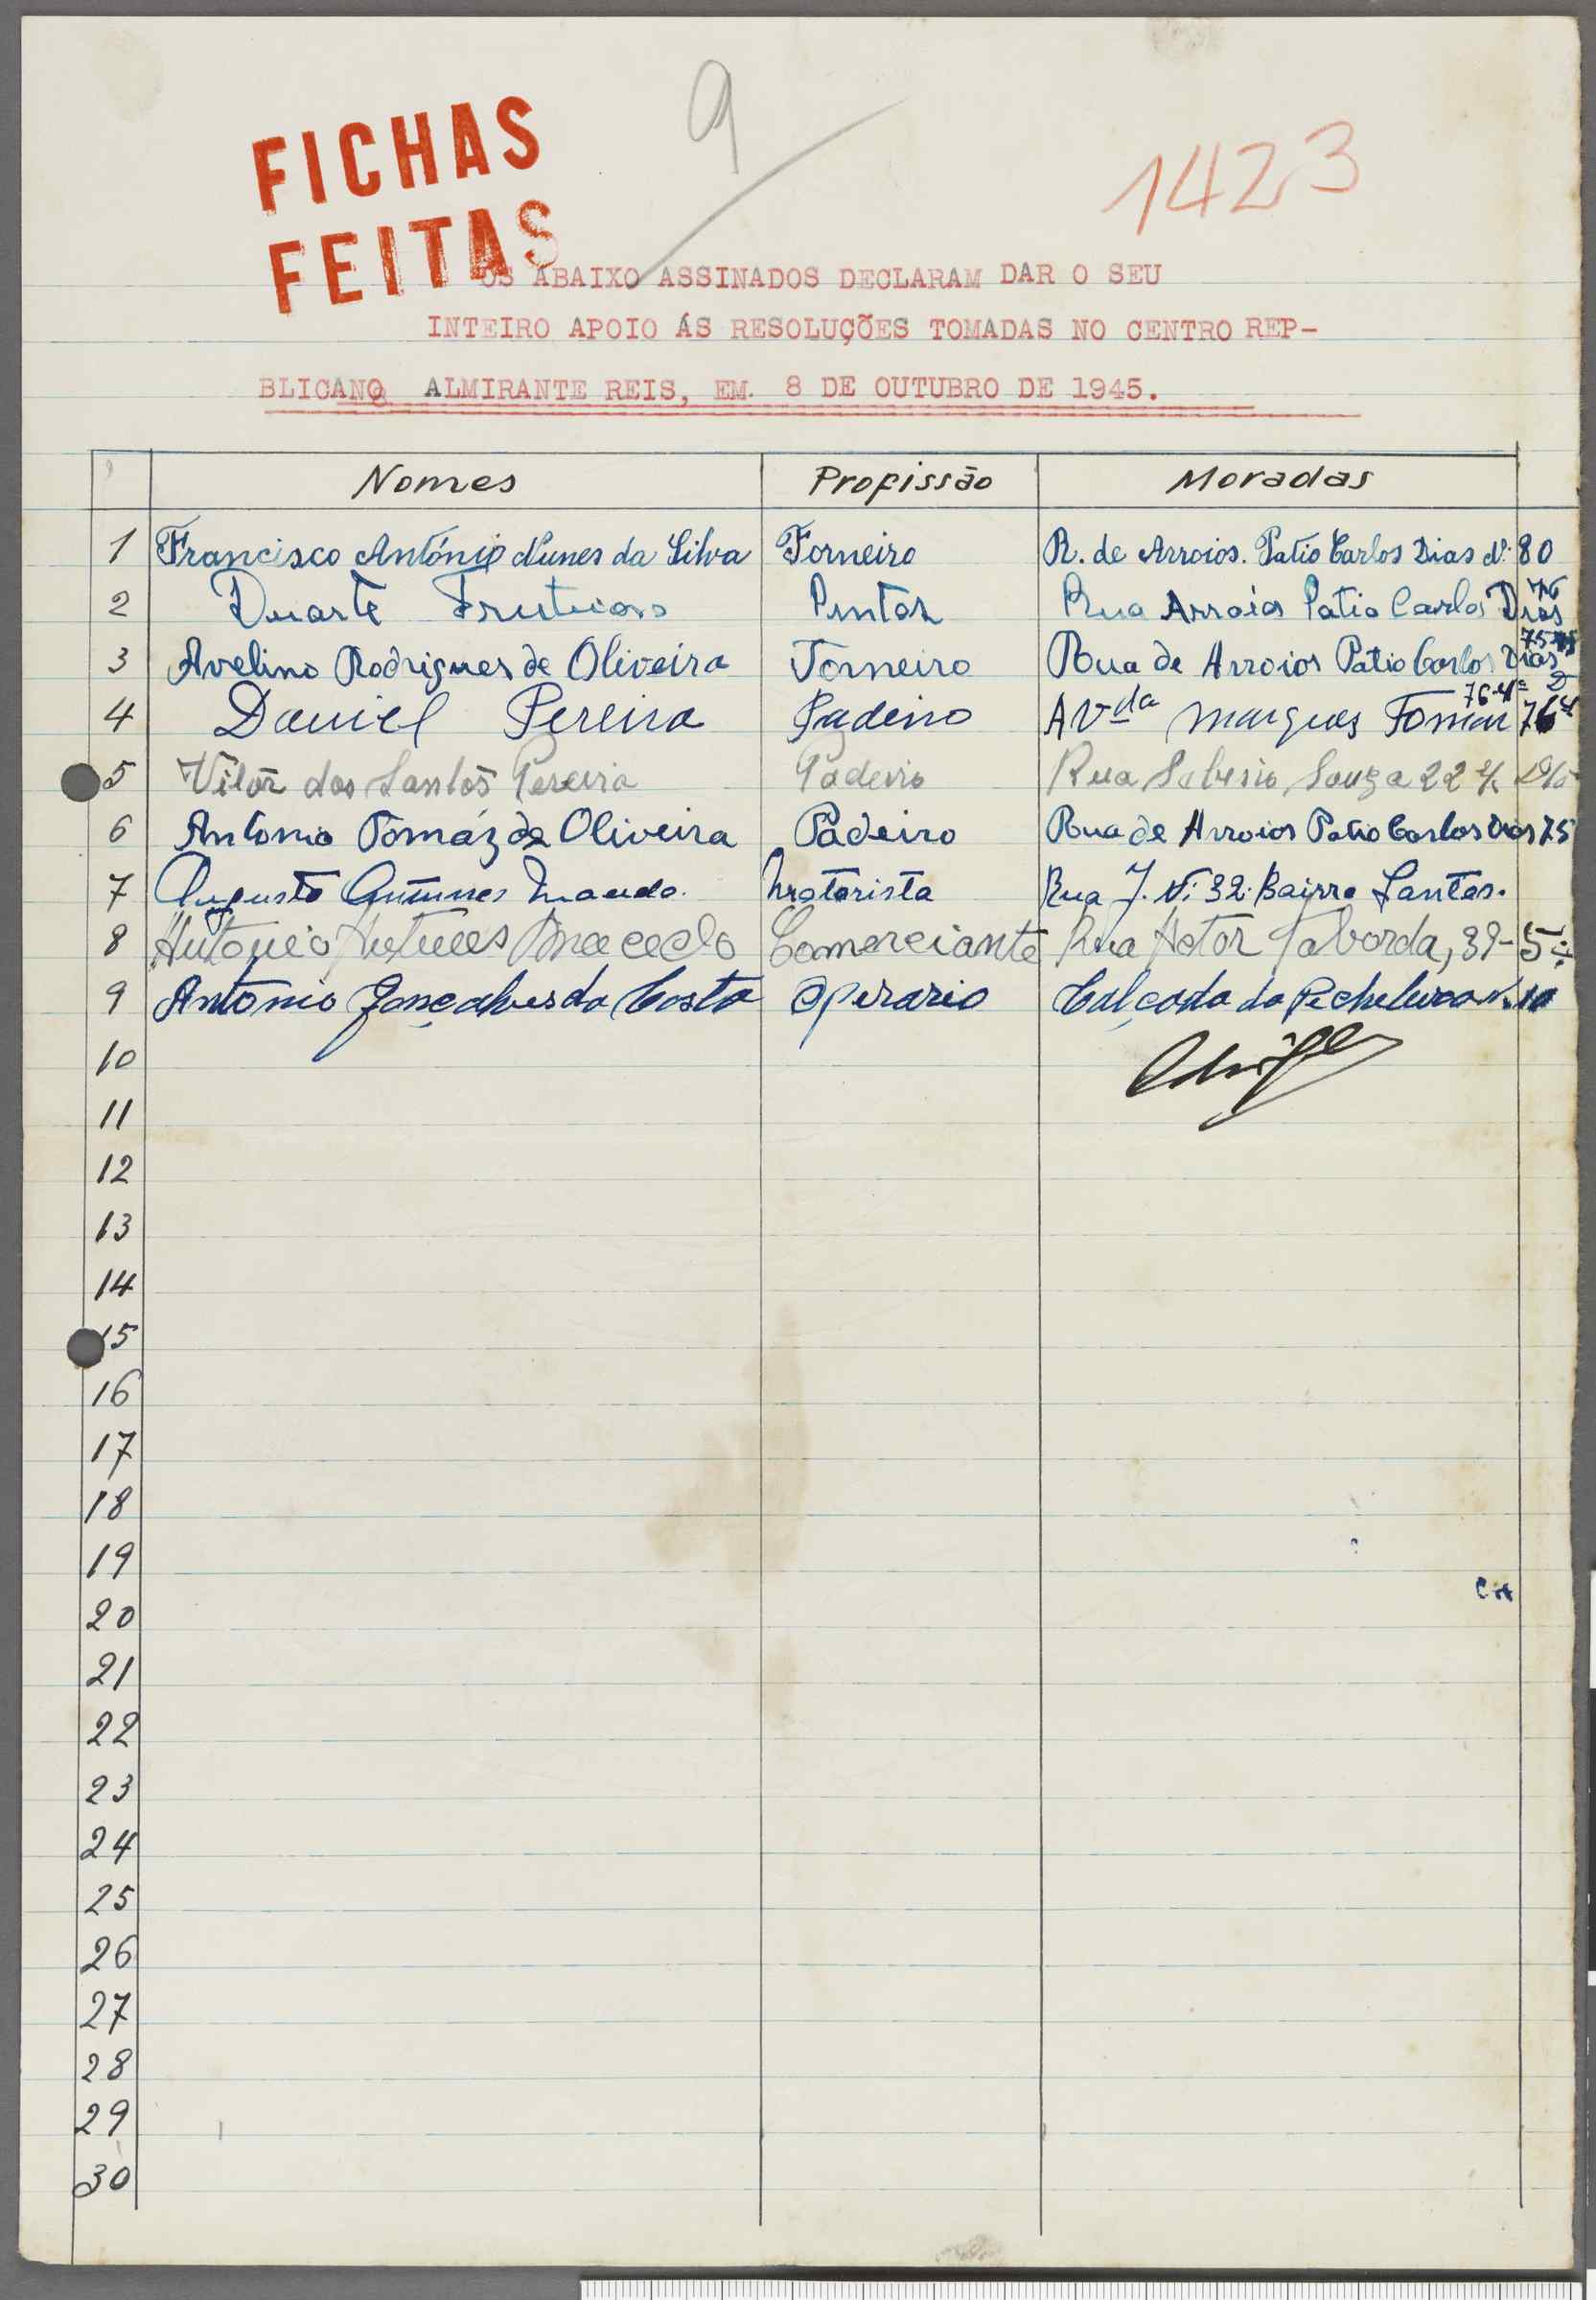 9
1423
FICHAS
FEITAS
OS ABAIXO ASSINADOS DECLARAM DAR O SEU
INTEIRO APOIO ÁS RESOLUÇÕES TOMADAS NO CENTRO REP-
BLICANO ALMIRANTE REIS, EM 8 DE OUTUBRO DE 1945.
Nomes Profissão Moradas
1 Francisco António Nunes da Silva Forneiro R. de Arroios. Patio Carlos Dias Nº 80
2 Duarte Frutuoso Pintor Rua Arroios Patio Carlos Dias 76
3 Avelino Rodrigues de Oliveira Torneiro Rua de Arroios Patio Carlos Dias 75
4 Daniel Pereira Padeiro Avda Marques Tomar 76
5 Vitor dos Santos Pereira Padeiro Rua Souza 22
6 Antonio Tomáz de Oliveira Padeiro Rua de Arroios Patio Carlos Dias 75
7 Augusto Antunes Motorista Rua J. Nº 32 Bairro Santos.
8 António Antunes Macedo Comerciante Rua Actor Taborda, 39-5º
9 Antonio Gonçalves da Costa Operario Calçada da Picheleira Nº 10
10
11
12
13
14
15
16
17
18
19
20
21
22
23
24
25
26
27
28
29
30